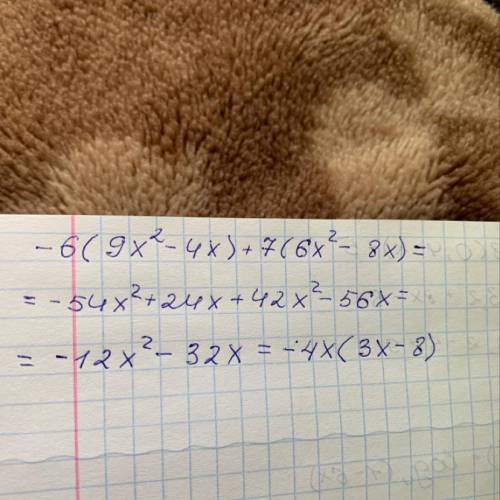 -6(9x²-4x)+7(6x²-8x)=
=-54x²+24x+42x²-56x=
=-12x²-32x=-4x(3x-8)